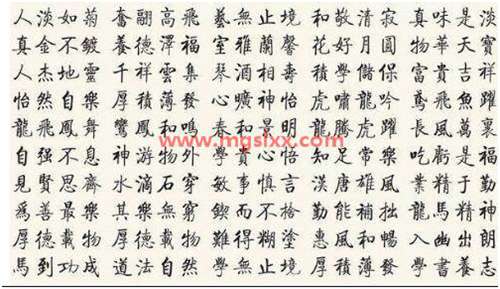 人淡如菊 奮翮高飛 藝無止境 和敬清寂 真味是淡
真金不鍍 養德澤福 室雅蘭馨 花好月圓 物華天寶
人杰地靈 千祥雲集 琴酒相壽 積學儲保 富貴吉祥
怡然自樂 厚積薄發 心曠神怡 虎嘯龍吟 鳶飛魚躍
龍飛鳳舞 鸞鳳和鳴 春和景明 龍騰虎躍 長風萬裏
www.mgslxx.com
自强不息 神游物外 學心悟 知足常樂 吃虧是福
見賢思齊 水滴石穿 敏事慎言 漢唐雄風 業精于勤
爲善最樂 其樂無窮 鍥而不捨 勤能補拙 龍馬精神
厚德載物 厚德載物 難得糊塗 惠風和暢 入幽出朗
馬到功成 道法自然 學無止境 厚積薄發 學書養志